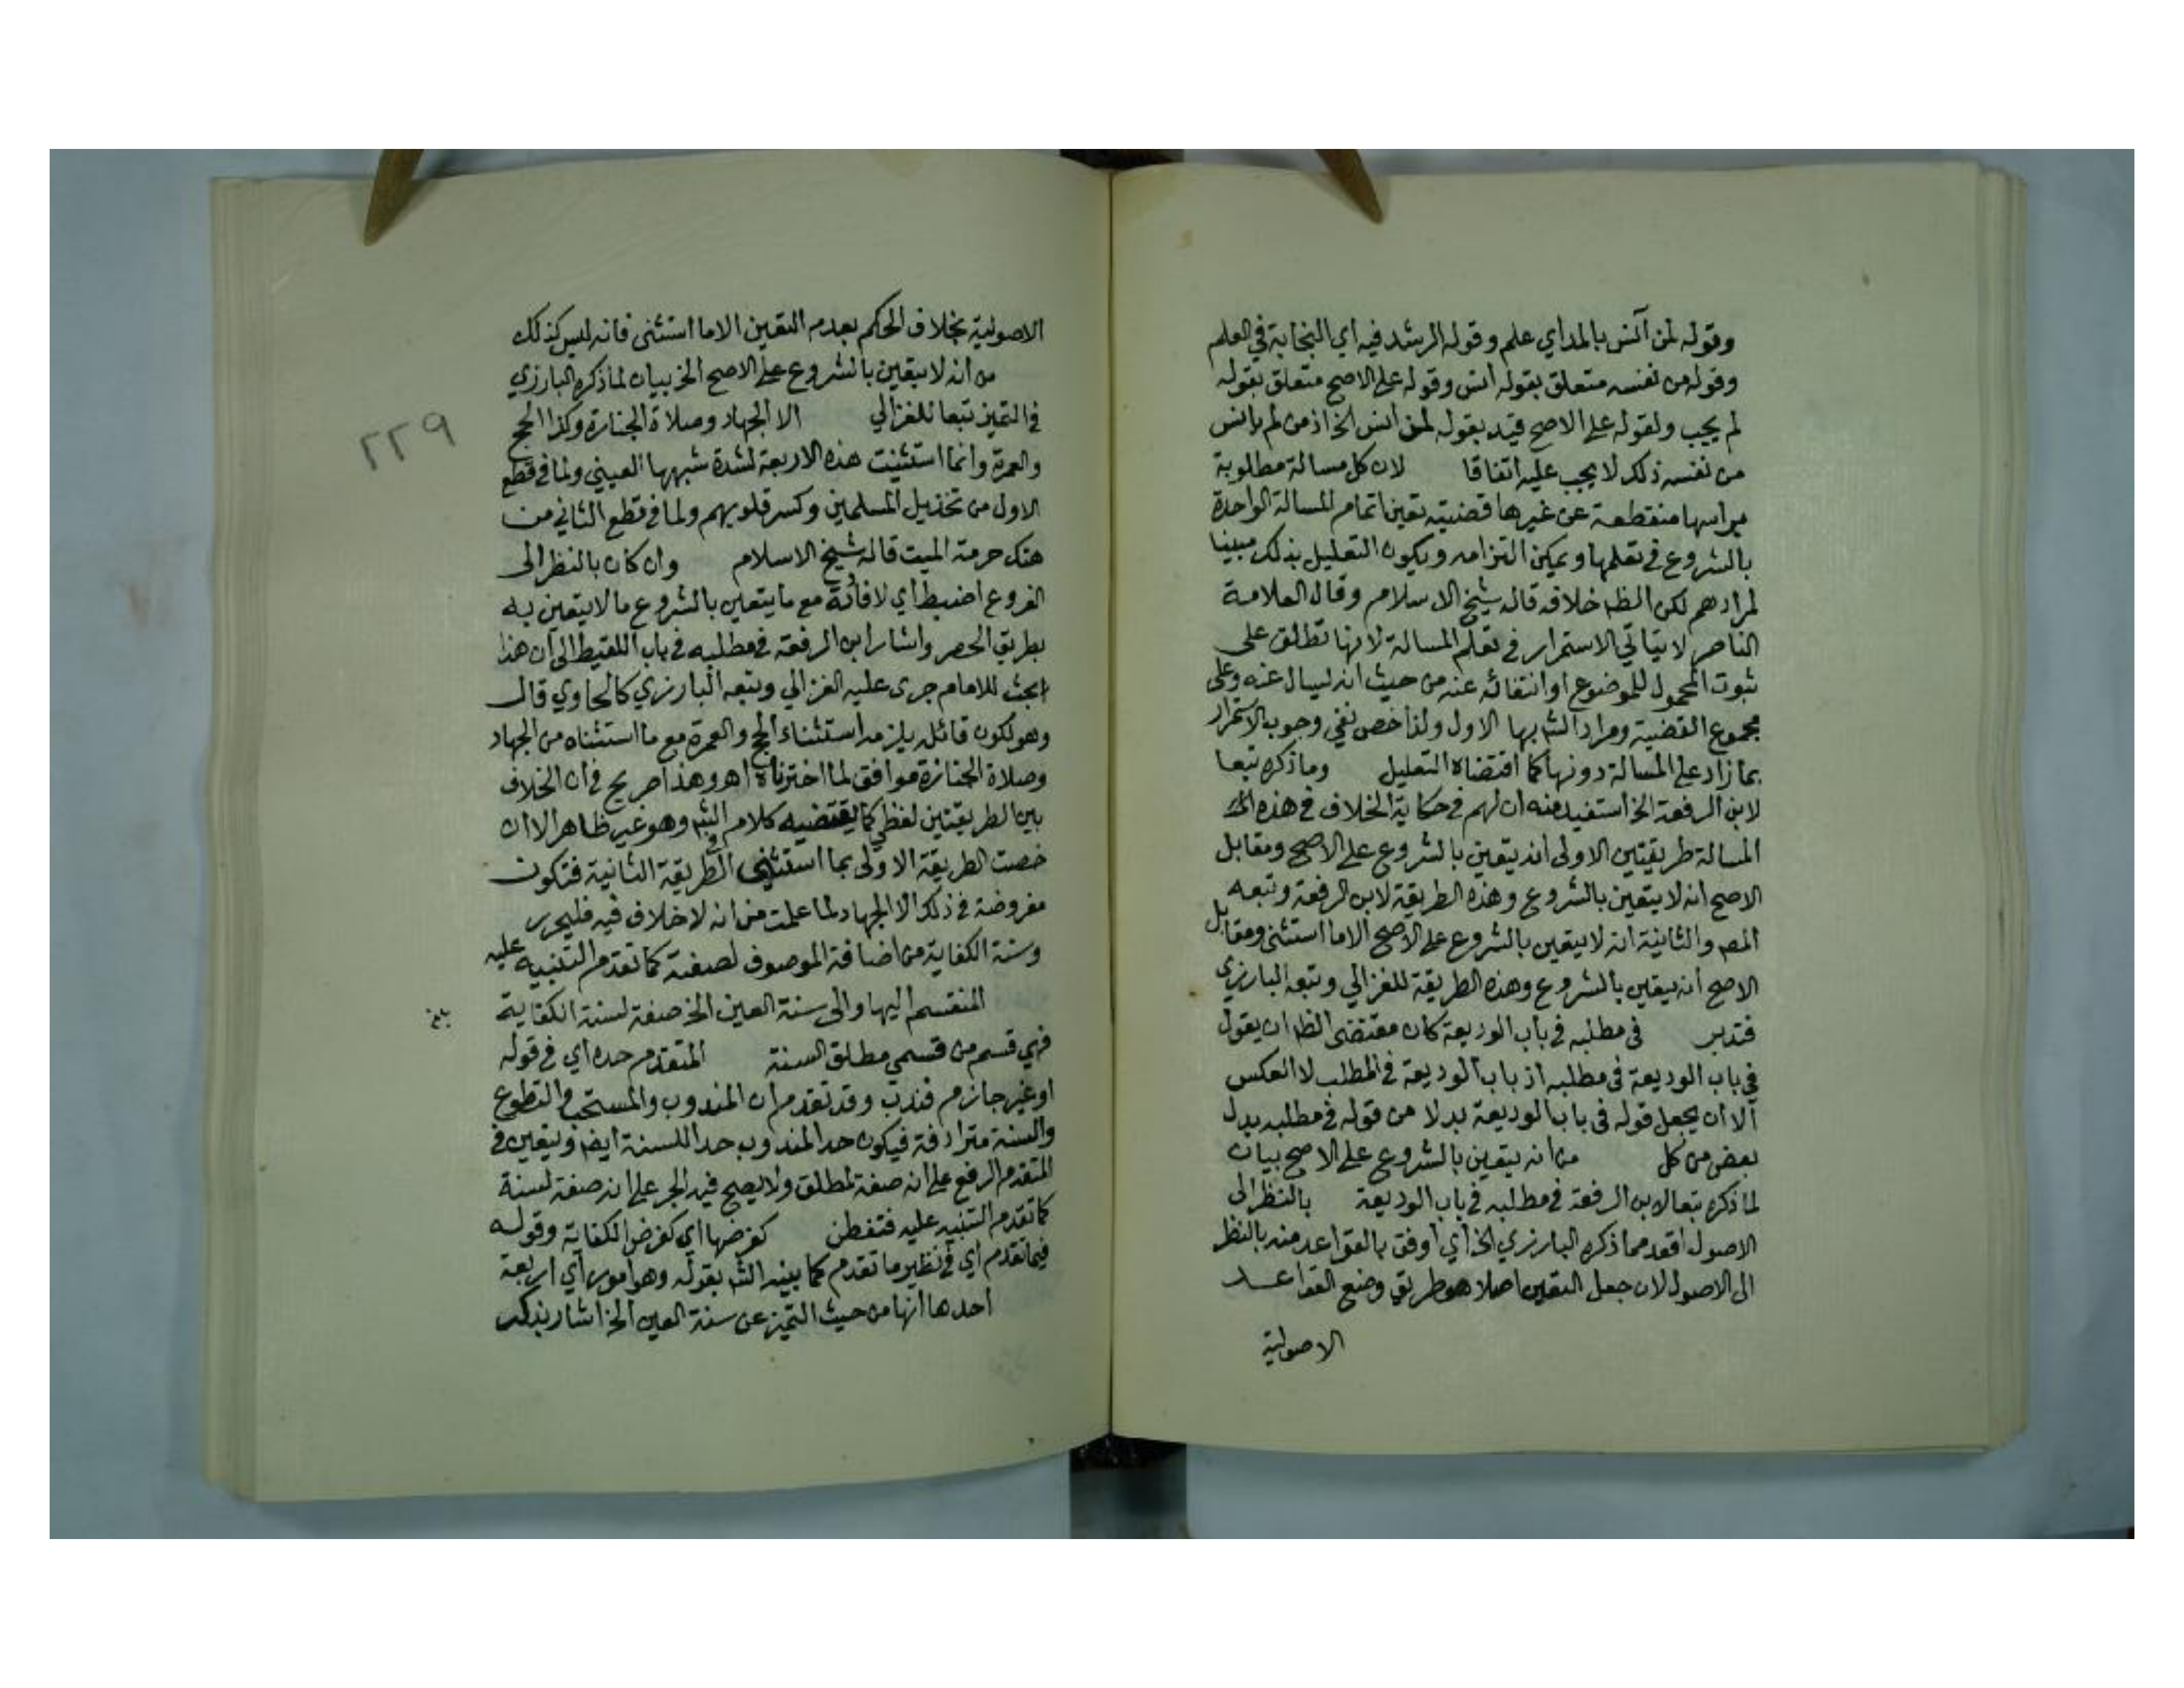 وقوله لمن آنس بالمد اي علم وقوله الرشد فيه اي النجابة في العلم
وقوله من نفسه متعلق بقوله انس وقوله على الاصح متعلق بقوله
لم يجب ولقوله على الاصح قيد بقوله لمن انس الخ اذ من لم يانس
من نفسه ذلك لا يجب عليه اتفاقا لان كل مسالة مطلوبة
براسها منقطعة عن غيرها قضيته تعين اتمام المسالة الواحدة
بالشروع في تعلمها ويمكن التزامه ويكون التعليل بذلك مبينا
لمرادهم لكن الظ خلافه قاله شيخ الاسلام وقال العلامة
الناصر لا يتاتي الاستمرار في تعلم المسالة لانها تطلق على
ثبوت المحمول للموضوع او انتفائه عنه من حيث انه ليسال عنه وعلى
مجموع القضية ومراد الش بها الاول ولذا خص نفي وجوب الاستمرار
بما زاد على المسالة دونها كما اقتضاه التعليل وما ذكره تبعا
لابن الرفعة الخ استفيد منه ان لهم في حكاية الخلاف في هذه
المسالة طريقتين الاولى انه يتعين بالشروع على الاصح ومقابل
الاصح انه لا يتعين بالشروع وهذه الطريقة لابن الرفعة وتبعه
المص والثانية انه لا يتعين بالشروع على الاصح الا ما استثنى ومقابل
الاصح انه يتعين بالشروع وهذه الطريقة للغزالي وتبعه البارزي
فتدبر في مطلبه في باب الوديعة كان مقتضى الظ ان يقول
في باب الوديعة في مطلبه اذ باب الوديعة في المطلب لا العكس
الا ان يجعل قوله في باب الوديعة بدلا من قوله في مطلبه بدل
بعض من كل من انه يتعين بالشروع على الاصح بيان
لما ذكره تبعا لابن الرفعة في مطلبه في باب الوديعة بالنظر الى
الاصول اقعد مما ذكره البارزي الخ اي اوفق بالقواعد منه بالنظر
الى الاصول لان جعل التعين اصلا هو طريق وضع القواعد
الاصولية
الاصولية بخلاف الحكم بعدم التعين الا ما استثنى فانه ليس كذلك
من انه لا يتعين بالشروع على الاصح الخ بيان لما ذكره البارزي
في التميز تبعا للغزالي الا الجهاد وصلاة الجنازة وكذا الحج
والعمرة وانما استثنيت هذه الاربعة لشدة شبهها العيني ولما في قطع
الاول من تخذيل المسلمين وكسر قلوبهم ولما في قطع الثاني من
هتك حرمة الميت قاله شيخ الاسلام وان كان بالنظر الى
الفروع اضبط اي لافادته مع ما يتعين بالشروع ما لا يتعين به
بطريق الحصر واشار ابن الرفعة في مطلبه في باب اللقيط الى ان هذا
بحث للامام جرى عليه الغزالي وتبعه البارزي كالحاوي قال
وهو لكون قائله يلزمه استثناء الحج والعمرة مع ما استثناه من الجهاد
وصلاة الجنازة موافق لما اخترناه اهـ وهذا صريح في ان الخلاف
بين الطريقتين لفظي كما يقتضيه كلام الش وهو غير ظاهر الا ان
خصت الطريقة الاولى بما استثنى في الطريقة الثانية فتكون
مفروضة في ذلك الا الجهاد لما علمت من انه لا خلاف فيه فليحرر
وسنة الكفاية من اضافة الموصوف لصفته كما تقدم التنبيه عليه
المنقسم اليها والى سنة العين الخ صفة لسنة الكفاية
فهي قسم من قسمي مطلق السنة المتقدم حده اي في قوله
او غير جازم فندب وقد تقدم ان المندوب والمستحب والتطوع
والسنة مترادفة فيكون حد المندوب حدا للسنة ايض ويتعين في
المتقدم الرفع على انه صفة لمطلق ولا يصح فيه الجر على انه صفة لسنة
كما تقدم التنبيه عليه فتفطن كفرضها اي كفرض الكفاية وقوله
فيما تقدم اي في نظير ما تقدم كما بينه الش بقوله وهو امور اي اربعة
احدها انها من حيث التميز عن سنة العين الخ اشار بذلك
٢٢٩
بلغ